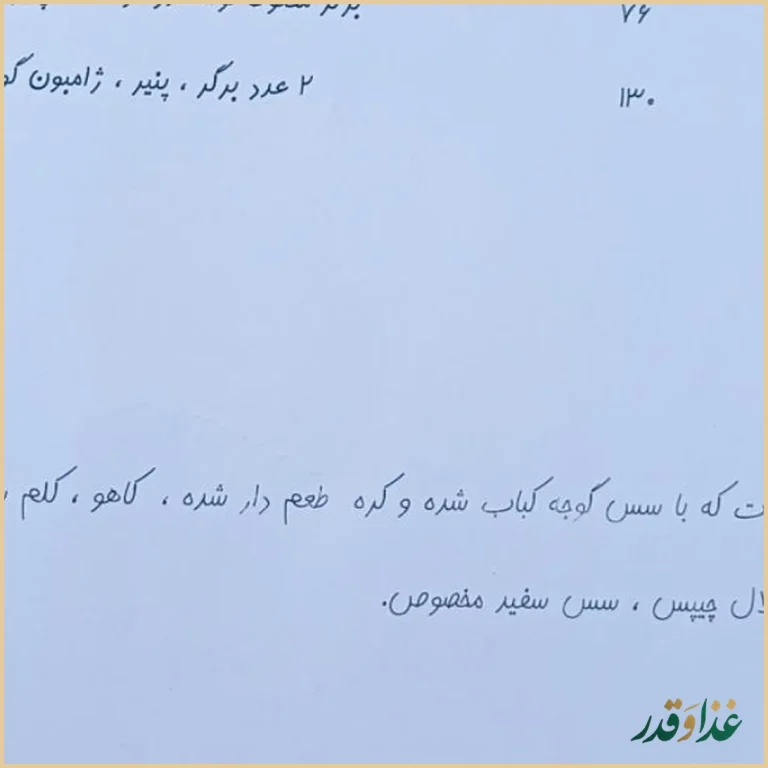 ۷۶ برگر
۱۳۰ ۲ عدد برگر ، پنیر ، ژامبون
که با سس گوجه کباب شده و کره طعم دار شده ، کاهو ، کلم
چیپس ، سس سفید مخصوص.
غذا و قدر